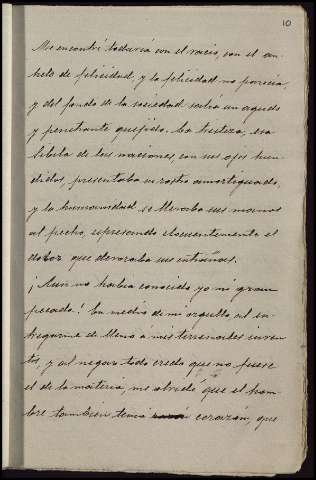 10
Me encontré todavía con el vacío, con el an-
helo de felicidad, y la felicidad no parecía,
y del fondo de la sociedad salía un agudo
y penetrante quejido. La tristeza, esa
libita de las naciones, con sus ojos hun-
didos, presentaba su rostro amortiguado,
y la humanidad se llevaba sus manos
al pecho, expresando elocuentemente el
dolor que devoraba sus entrañas.
¡Aun no había conocido yo mi gran
pecado! En medio de mi orgullo, al en-
tregarme de lleno á mis terrenales inven-
tos, y al negar todo credo que no fuese
el de la materia, me olvidé que el hom-
bre tambien tenia corazón, que